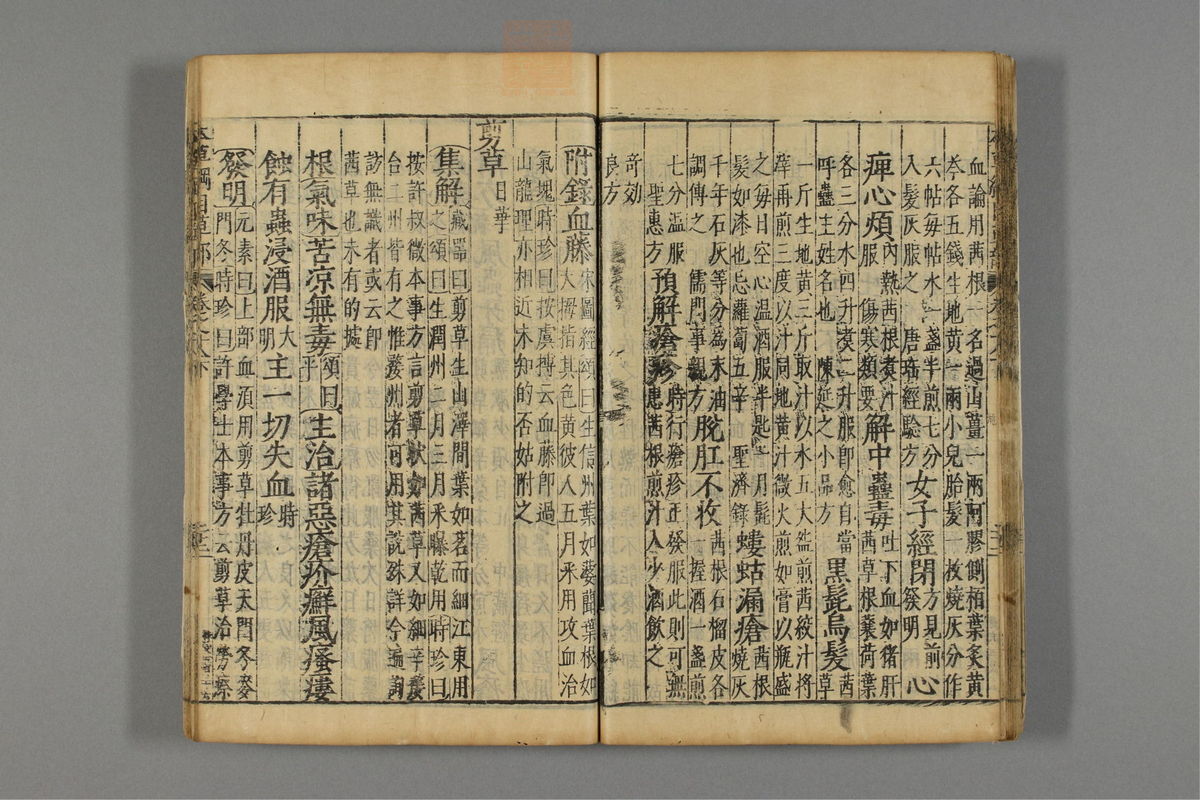 血論用茜根一名過山薑一兩阿膠側柏葉炙黃
芩各五錢生地黃一兩小兒胎髮一枚燒灰分作
六帖每帖水一盞半煎七分
入髮灰服之 唐瑤經驗方
女子經閉 方見前
發明 心
痺心煩 內熱茜根煮汁
服 傷寒類要
解中蠱毒 吐下血如猪肝
茜草根蘘荷葉
各三分水四升煑二升服即愈自當
呼蠱主姓名也 陳延之小品方
黑髭烏髮 茜
草
一斤生地黃三斤取汁以水五大盌煎茜絞汁將
滓再煎三度以汁同地黃汁微火煎如膏以瓶盛
之每日空心温酒服半匙一月髭
髮如漆也忌蘿蔔五辛 聖濟錄
螻蛄漏瘡 茜根
燒灰
千年石灰等分為末油
調傅之 儒門事親方
脫肛不收 茜根石榴皮各
一握酒一盞煎
七分温服
聖惠方
預解瘡疹 時行瘡疹正發服此則可無
患茜根煎汁入少酒飲之
奇効
良方
附錄血藤 宋圖經頌曰生信州葉如蔢䕞葉根如
大拇指其色黃彼人五月采用攻血治
氣塊時珍曰按虞摶云血藤即過
山龍理亦相近未知的否姑附之
剪草 日華
集解 藏器曰剪草生山澤間葉如茗而細江東用
之頌曰生潤州二月三月采曝乾用時珍曰
按許叔微本事方言剪草狀如茜草又如細辛婺
台二州皆有之惟婺州者可用其說殊詳今遍詢
訪無識者或云即
茜草也未有的據
根氣味苦凉無毒 頌曰
平
主治諸惡瘡疥癬風瘙瘻
蝕有蟲浸酒服 大
明
主一切失血 時
珍
發明 元素曰上部血須用剪草牡丹皮天門冬麥
門冬時珍曰許學士本事方云剪草治勞瘵
本草綱目草部 卷之十八下